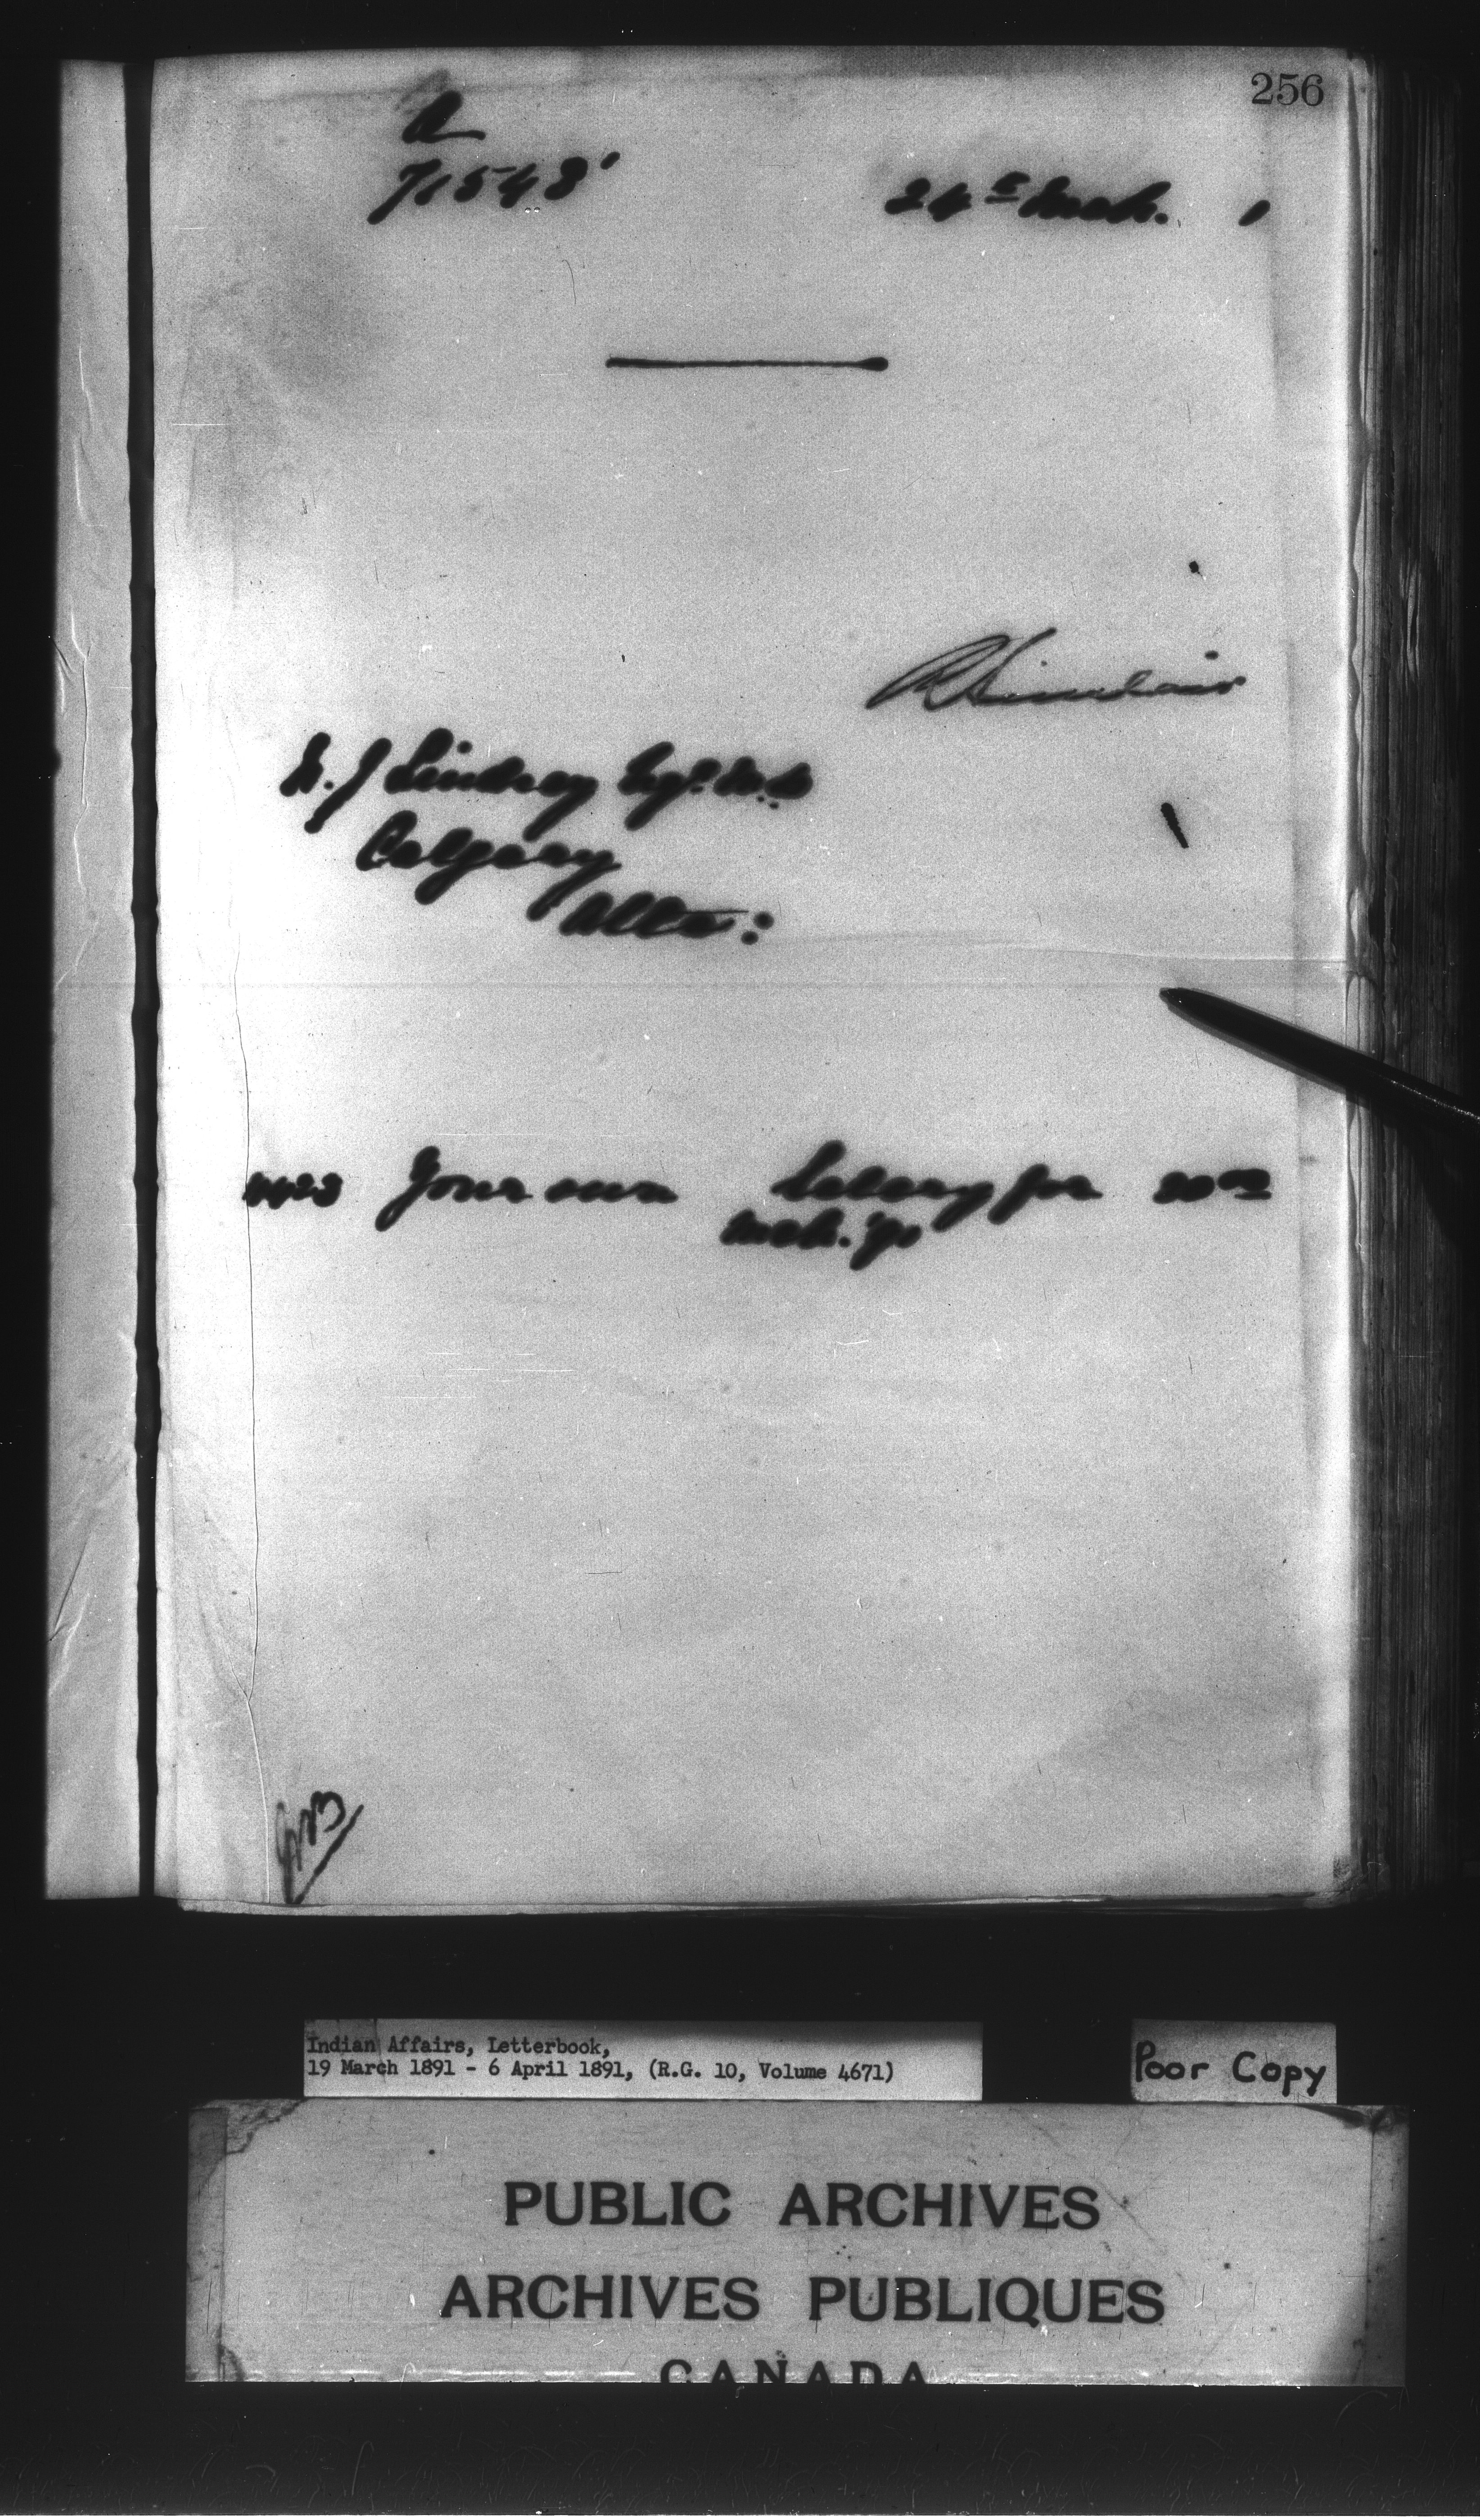 256
A
71548
24th Mch. 1
R Sinclair
N. J Lindsay Esq. M.D
Calgary
Alta:
4423 Your own Salary for 20 00
Mch. '91
Indian Affairs, Letterbook,
19 March 1891 - 6 April 1891, (R.G. 10, Volume 4671)
Poor Copy
PUBLIC ARCHIVES
ARCHIVES PUBLIQUES
CANADA